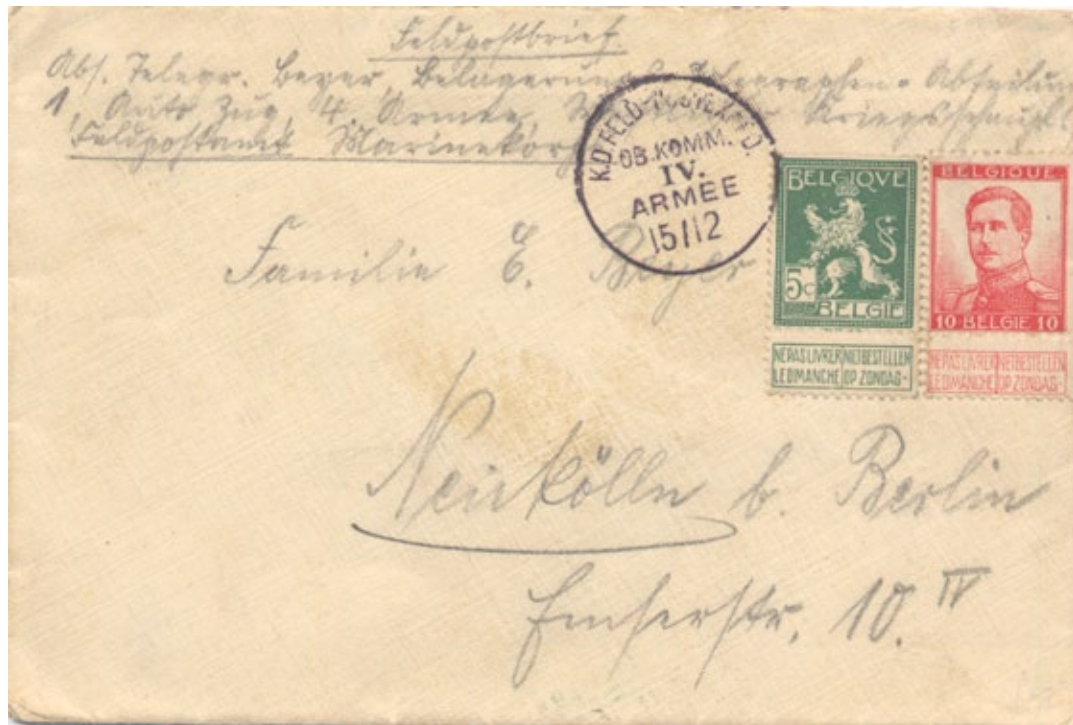 Feldpostbrief
Abs. Telegr. Beyer, Belagerungs-Telegraphen-Abteilung
1, Auto Zug, 4. Armee, Kriegsschaupl
Feldpostamt Marinekorps
K.D. FELD-POSTEXPED.
OB.KOMM.
IV.
ARMEE
15/12
BELGIQVE
5c
BELGIE
NE PAS LIVRER NIET BESTELLEN
LE DIMANCHE OP ZONDAG-
BELGIQUE
10 BELGIE 10
NE PAS LIVRER NIET BESTELLEN
LE DIMANCHE OP ZONDAG-
Familie E. Beyer
Neukölln b. Berlin
Emserstr. 10.IV